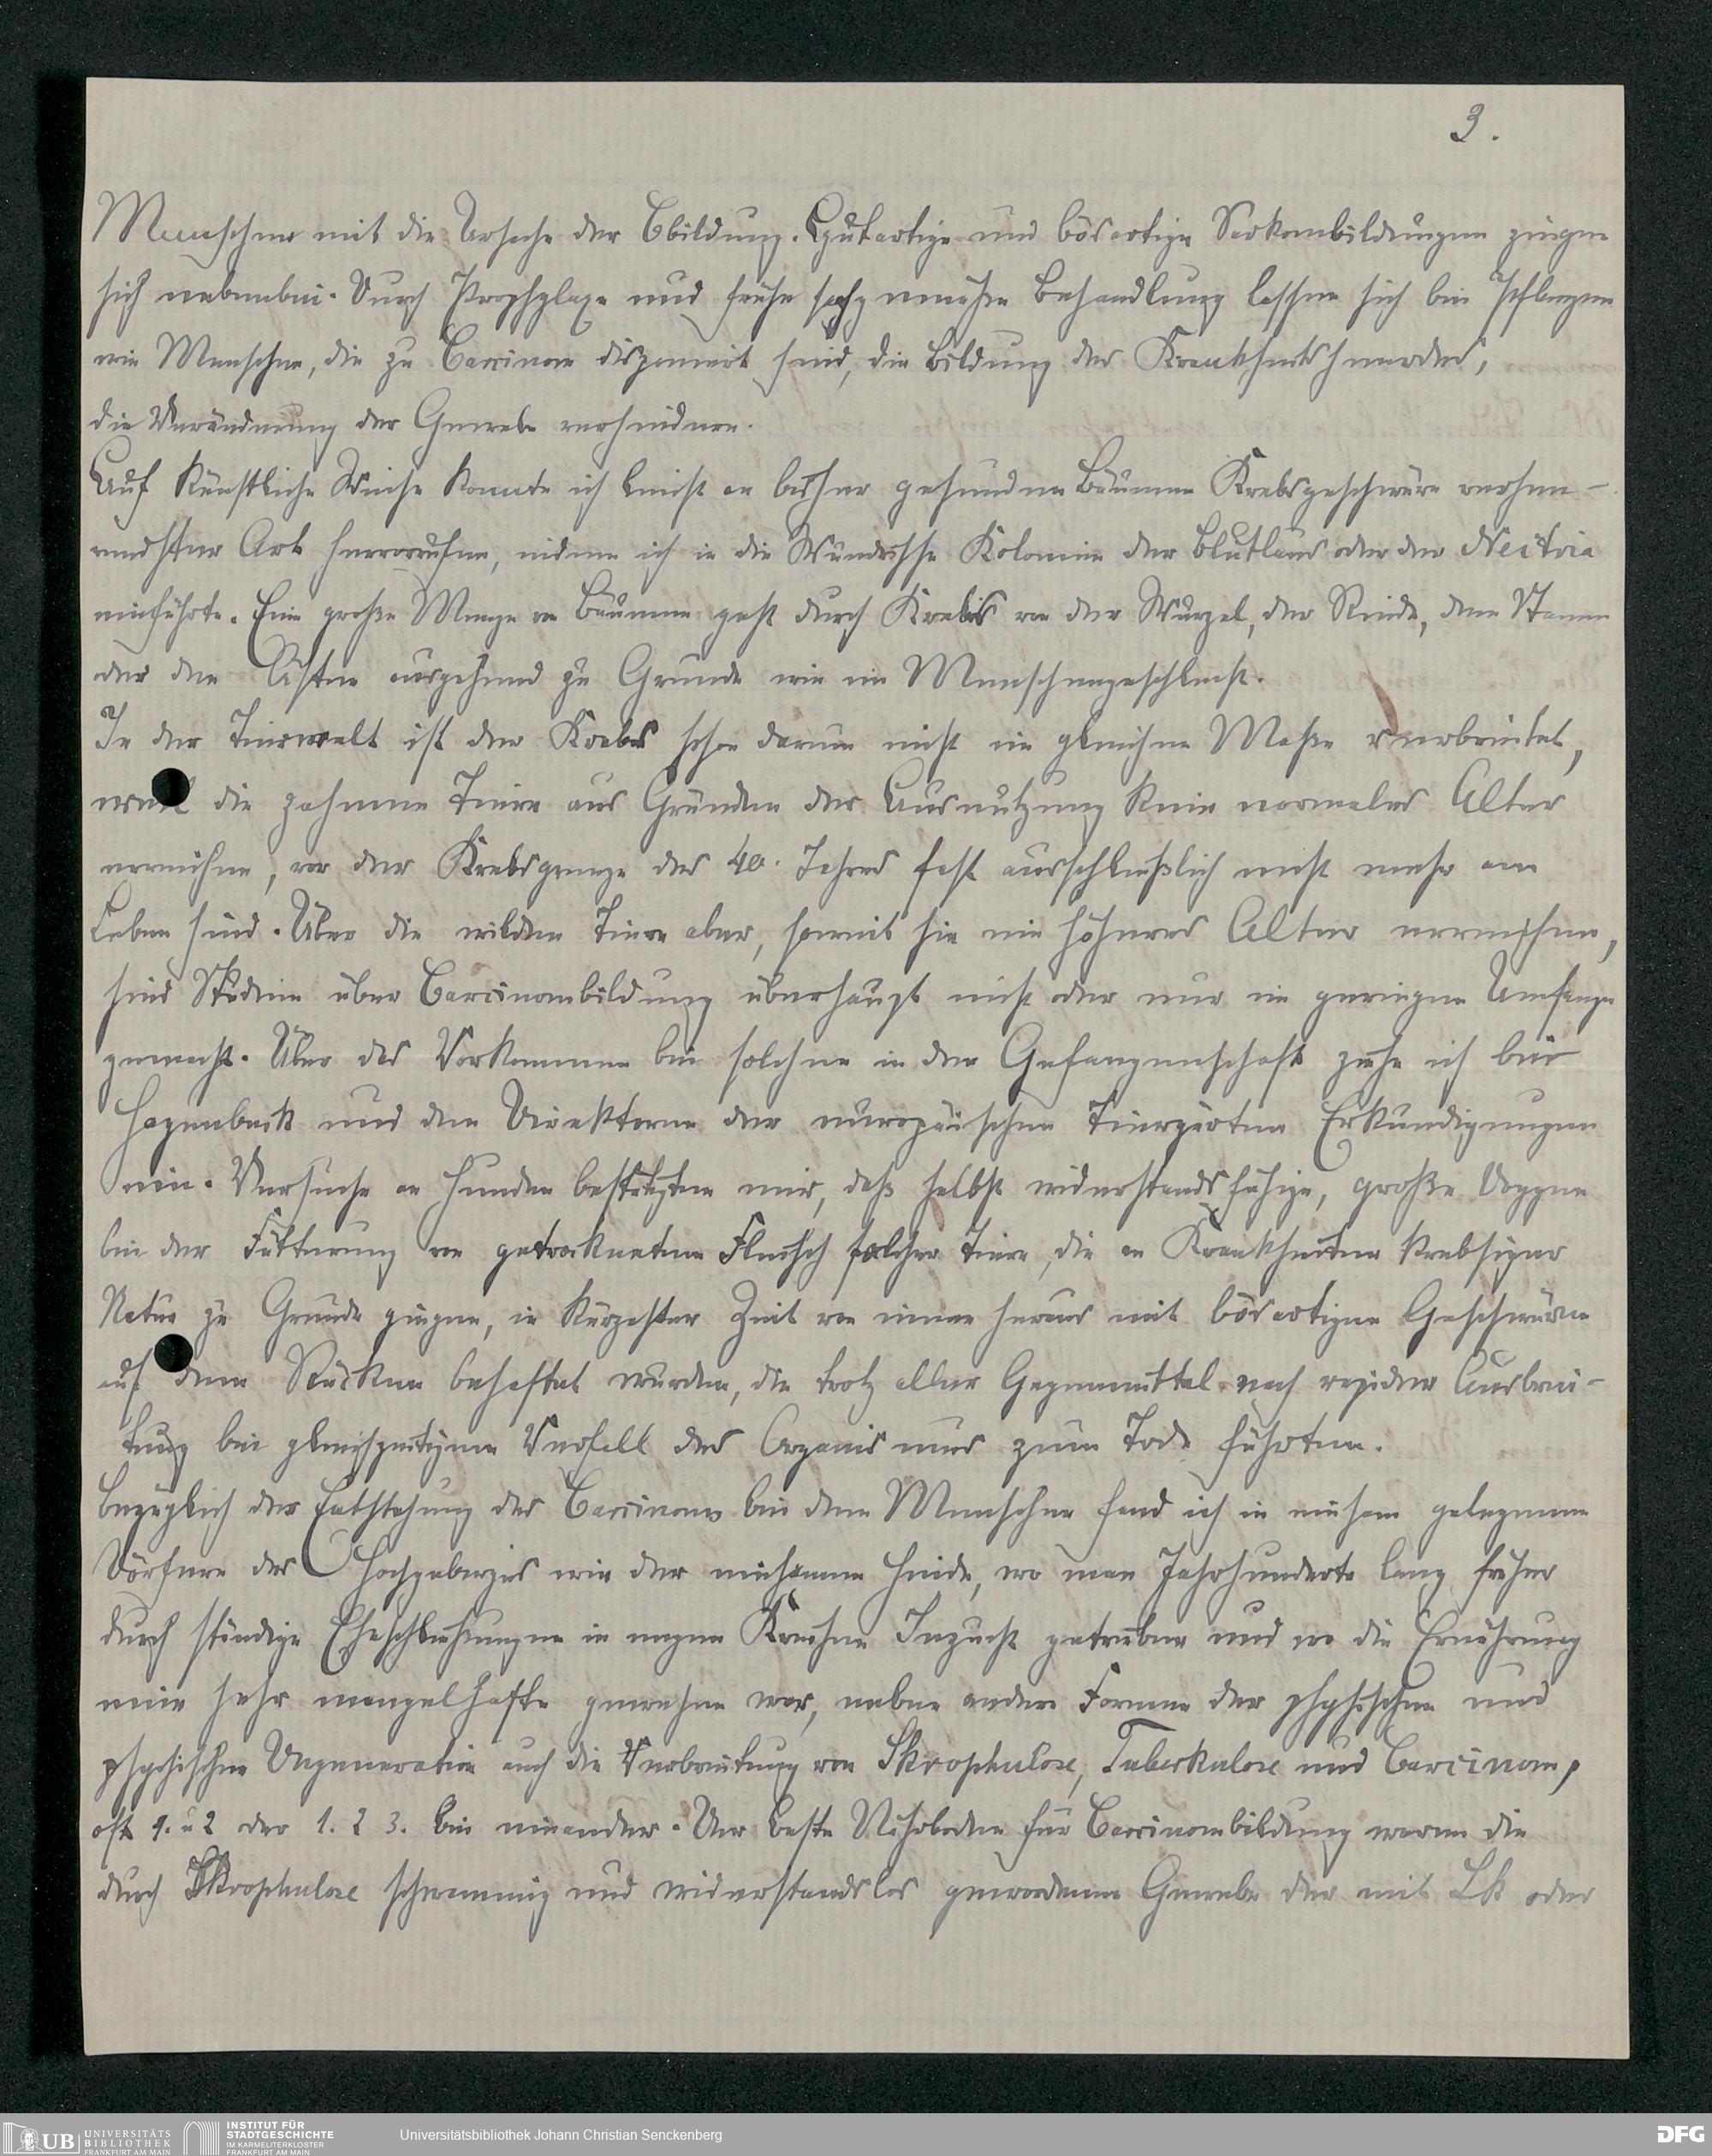 3.
Menschen mit die Ursache der Cbildung. Gutartige und bösartige Sarkombildungen zeigen
sich nebenbei. Durch Prophylaxe und frühe sachgemäße Behandlung lassen sich bei Pflanzen
wie Menschen, die zu Carcinom disponiert sind, die Bildung des Krankheitsherdes,
die Veränderung der Gewebe verhindern.
Auf künstliche Weise konnte ich leicht an bisher gesunden Bäumen Krebsgeschwüre verheerendster
Art hervorrufen, indem ich in die Wundrisse Kolonien der Blutlaus oder der Nectria
einführte. Eine große Menge an Bäumen geht durch Krebs von der Wurzel, der Rinde, dem Stamm
oder den Ästen ausgehend zu Grunde wie im Menschengeschlecht.
In der Tierwelt ist der Krebs schon darum nicht im gleichen Maße verbreitet,
weil die zahmen Tiere aus Gründen der Ausnützung kein normales Alter
erreichen, vor der Krebsgrenze des 40. Jahres fast ausschließlich nicht mehr am
Leben sind. Über die wilden Tiere aber, soweit sie ein höheres Alter erreichen,
sind Studien über Carcinombildung überhaupt nicht oder nur im geringen Umfange
gemacht. Über das Vorkommen bei solchen in der Gefangenschaft ziehe ich bei
Hagenbeck und den Direktoren der europäischen Tiergärten Erkundigungen
ein. Versuche an Hunden bestätigten mir, daß selbst widerstandsfähige, große Doggen
bei der Fütterung von getrocknetem Fleisch solcher Tiere, die an Krankheiten krebsiger
Natur zu Grunde gingen, in kürzester Zeit von innen heraus mit bösartigen Geschwüren
auf dem Rücken behaftet wurden, die trotz aller Gegenmittel nach rapider Ausbrei-
tung bei gleichzeitigem Verfall des Organismus zum Tode führten.
Bezüglich der Entstehung des Carcinoms bei dem Menschen fand ich in einsam gelegenen
Dörfern des Hochgebirges wie der einsamen Heide, wo man Jahrhunderte lang früher
durch ständige Eheschließungen in engen Kreisen Inzucht getrieben und wo die Ernährung
eine sehr mangelhafte gewesen war, neben andern Formen der physischen und
psychischen Degeneration auch die Verbreitung von Skrophulose, Tuberkulose und Carcinom,
oft 1. u 2 oder 1. 2 3. bei einander. Der beste Nährboden für Carcinombildung waren die
durch Skrophulose schwammig und widerstandslos gewordenen Gewebe der mit Sk oder
UNIVERSITÄTS
BIBLIOTHEK
FRANKFURT AM MAIN
INSTITUT FÜR
STADTGESCHICHTE
IM KARMELITERKLOSTER
FRANKFURT AM MAIN
Universitätsbibliothek Johann Christian Senckenberg
DFG